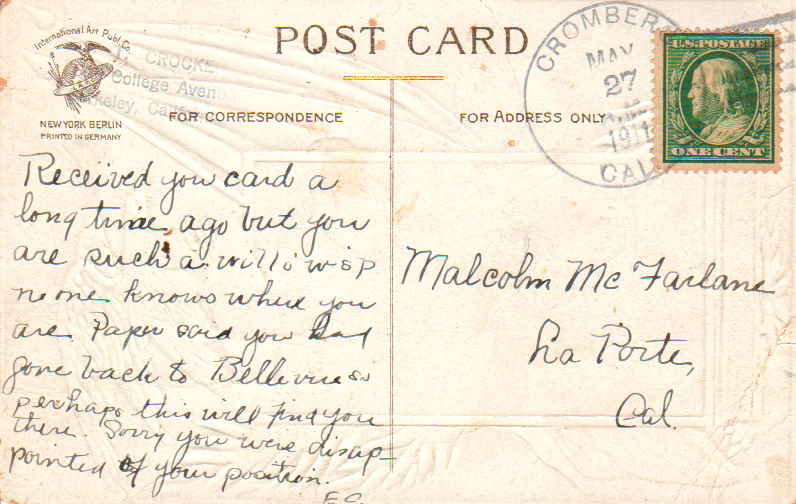 International Art Publ. Co.
NEW YORK BERLIN
PRINTED IN GERMANY
CROCKE
College Aven
keley, Cal
POST CARD
FOR CORRESPONDENCE
FOR ADDRESS ONLY
CROMBER
MAY
27
1911
CAL
U.S. POSTAGE
ONE CENT
Received you card a
long time ago but you
are such a will o' wisp
no one knows where you
are. Paper said you had
gone back to Bellevue so
perhaps this will find you
there. Sorry you were disap-
pointed of your position.
E.C.
Malcolm Mc Farlane
La Porte,
Cal.